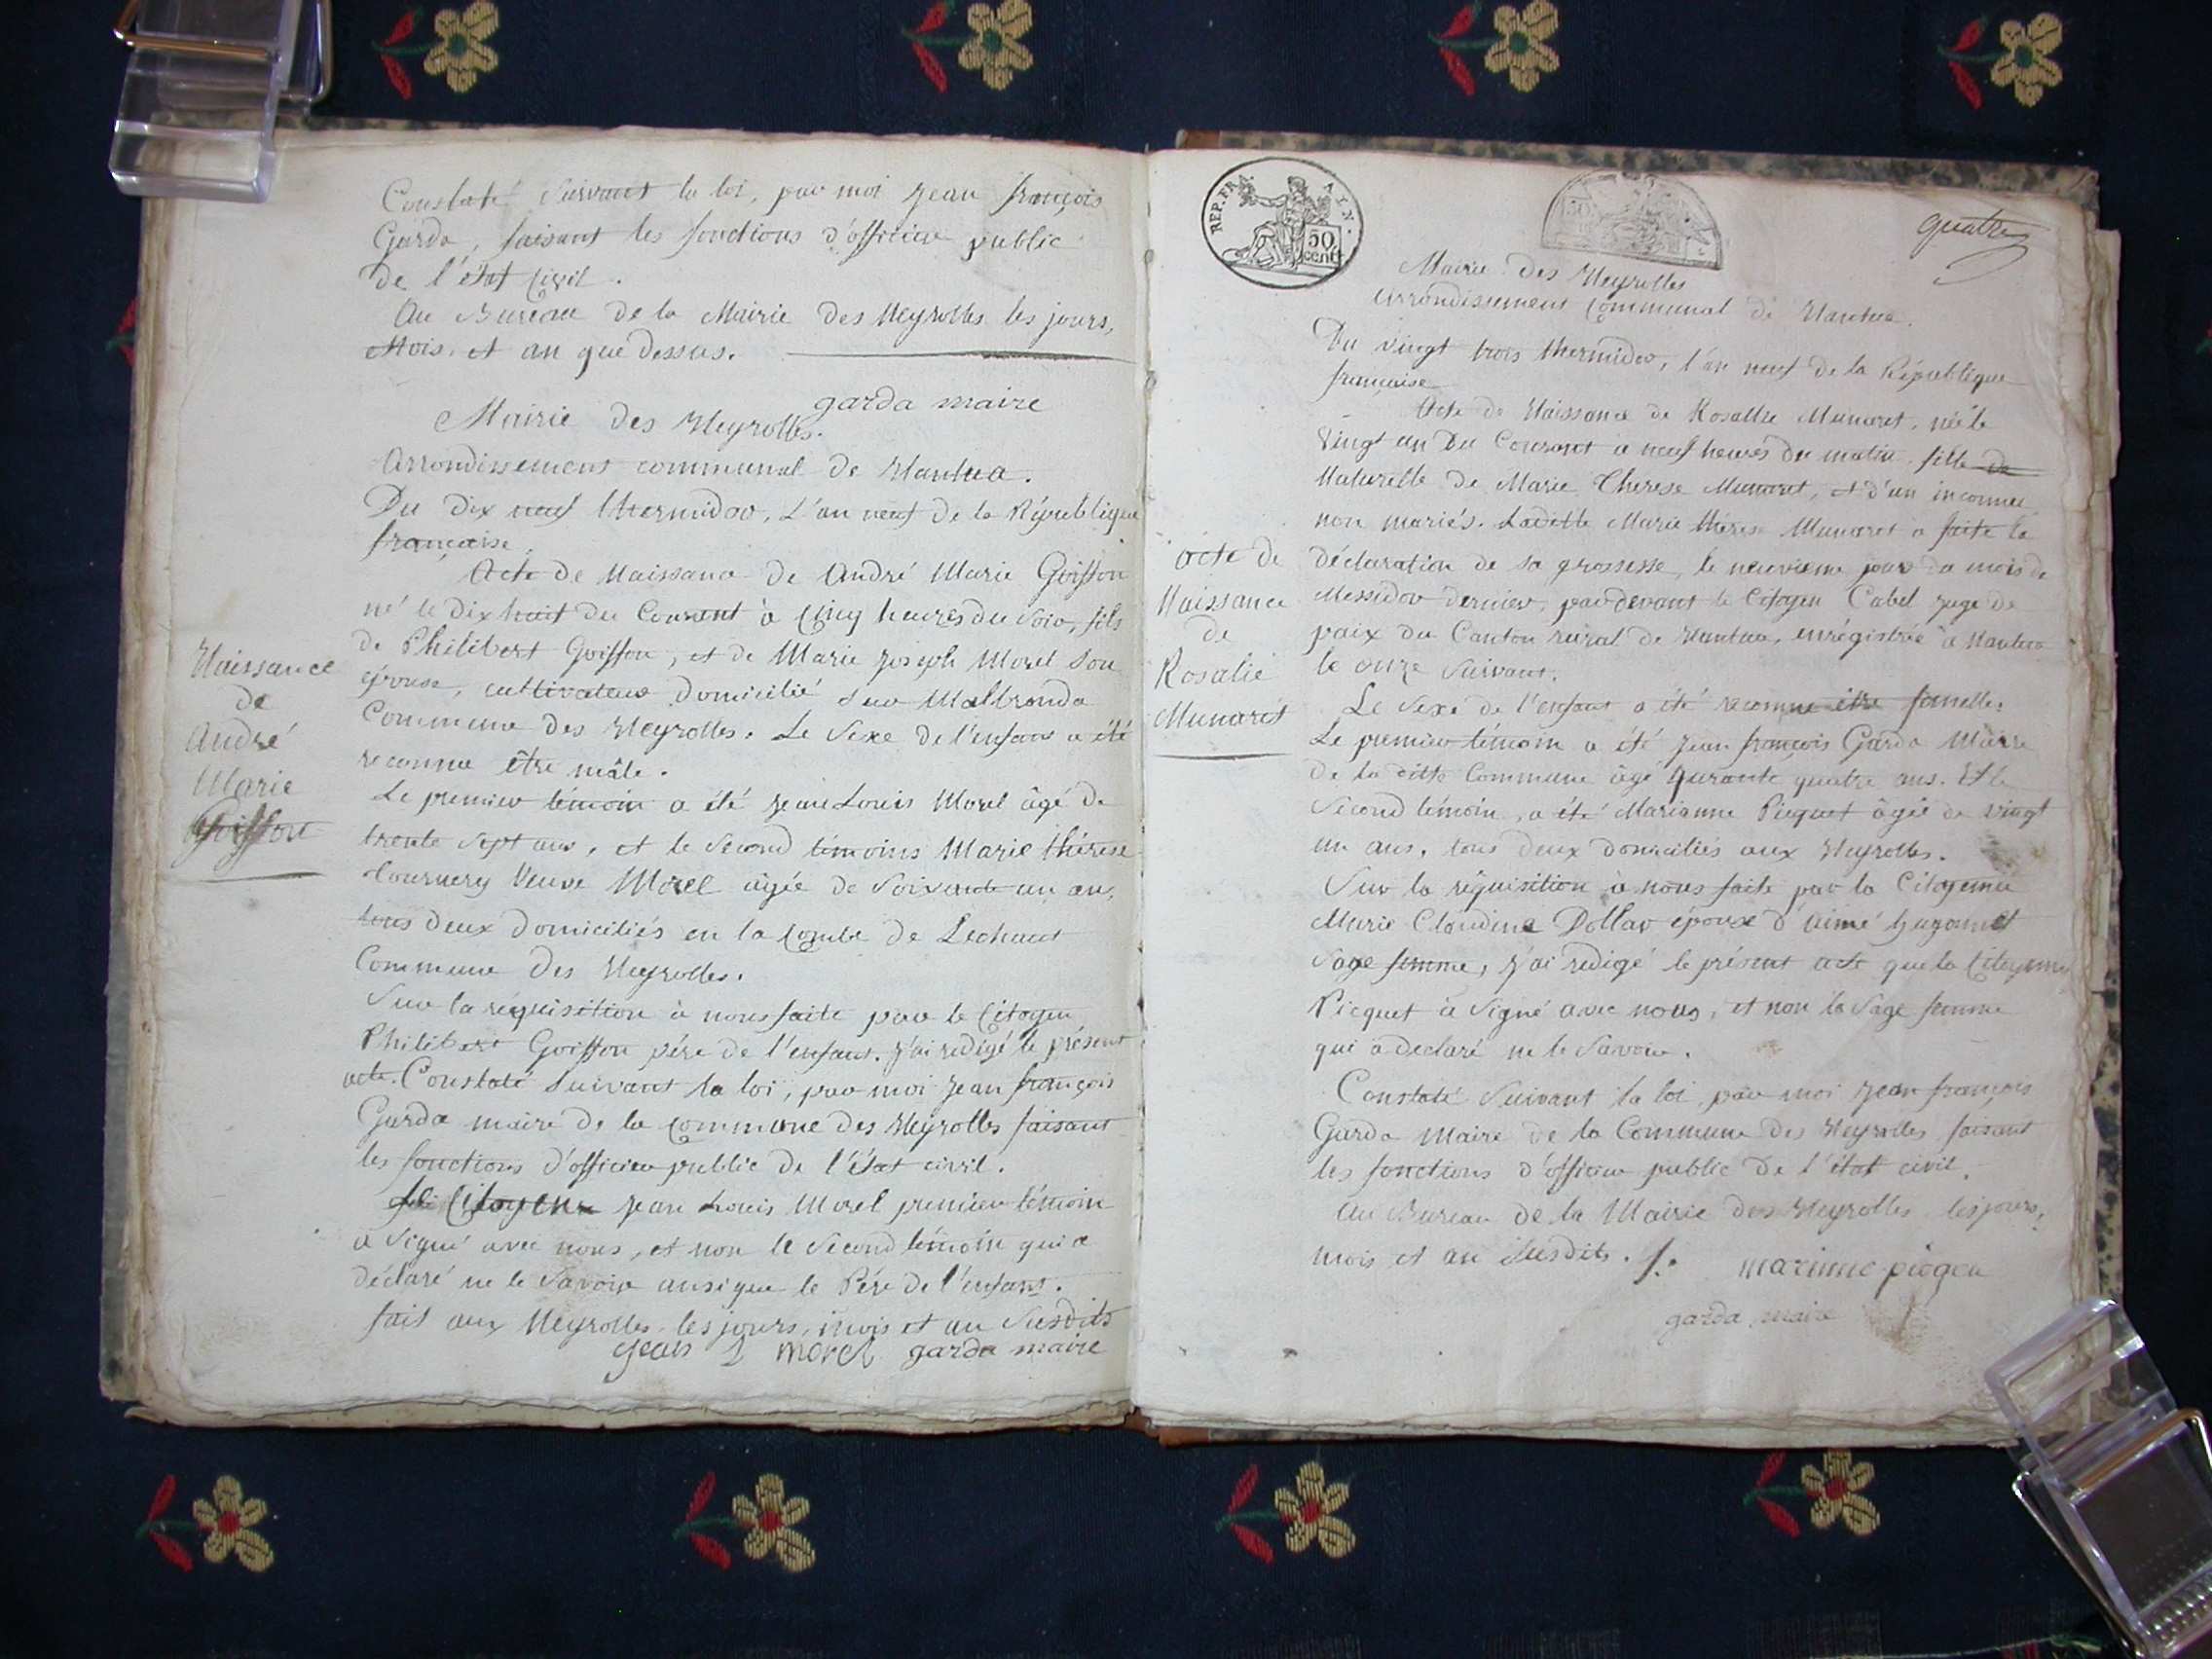 Constaté suivant la loi, par moi jean françois
Garda, faisant les fonctions d'officier public
de l'état civil.
Au Bureau de la Mairie des Neyrolles les jours,
Mois, et an que dessus.
garda maire
Mairie des Neyrolles.
Arrondissement communal de Nantua.
Du dix neuf thermidor, L'an neuf de la République
française.
Acte de Naissance de André Marie Goiffon
né le dix huit du Courant à Cinq heures du soir, fils
de Philibert Goiffon, et de Marie joseph Morel son
épouse, cultivateur domicilié sur Malbronda
Commune des Neyrolles. Le Sexe de l'enfant a été
reconnu être mâle.
Le premier témoin a été jean Louis Morel âgé de
trente sept ans, et le second témoins Marie thérese
Tournery Veuve Morel âgée de soixante un an,
tous deux domiciliés en la Combe de Lechaud
Commune des Neyrolles.
Sur la réquisition à nous faite par le Citoyen
Philibert Goiffon père de l'enfant. j'ai redigé le présent
acte. Constaté suivant la loi, par moi jean françois
Garda maire de la commune des Neyrolles faisant
les fonctions d'officier public de l'état civil.
Le Citoyen jean Louis Morel premier témoin
a signé avec nous, et non le second témoin qui a
déclaré ne le savoir ansi que le Père de l'enfant.
fait aux Neyrolles les jours, mois et an susdits
jean L morel garda maire
Naissance
de
André
Marie
Goiffon
REP. FRA.
AIN.
50
cent.
50
quatre
Mairie des Neyrolles
Arrondissement communal de Nantua.
Du vingt trois thermidor, l'an neuf de la République
française
Acte de Naissance de Rosalie Munaret, née le
Vingt un du Courant a neuf heures du matin. fille de
Naturelle de Marie Therese Munaret, et d'un inconnu
non mariés. Ladette Marie thérese Munaret a faite la
déclaration de sa grossesse, le neuvieme jour du mois de
Messidor dernier, par devant le Citoyen Cabel juge de
paix du Canton rural de Nantua, enrégistrée à Nantua
le onze suivant.
Le Sexe de l'enfant a été reconnu être femelle.
Le premier témoin a été jean françois Garda Maire
de la ditte Commune âgé quarante quatre ans. Et le
second témoin, a été Marianne Picquet âgée de vingt
un ans, tous deux domiciliés aux Neyrolles.
Sur la réquisition à nous faite par la Citoyenne
Marie Claudine Dollar épouse d'aimé hugonnet
Sage femme, j'ai redigé le présent acte que la Citoyenne
Picquet à signé avec nous, et non la Sage femme
qui a declaré ne le savoir.
Constaté suivant la loi, par moi jean françois
Garda Maire de la Commune des Neyrolles faisant
les fonctions d'officier public de l'état civil.
Au Bureau de la Mairie des Neyrolles les jours,
mois et an susdits.
garda maire
Acte de
Naissance
de
Rosalie
Munaret